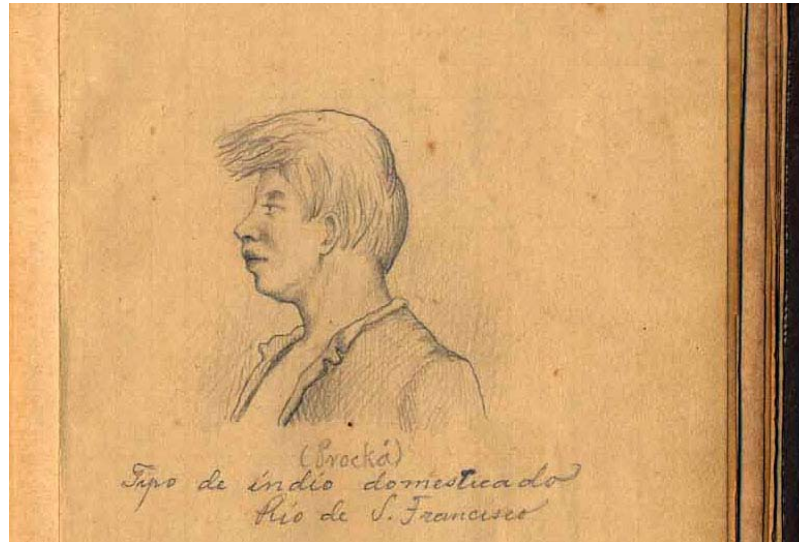 (Procká)
Tipo de indio domesticado
Rio de S. Francisco